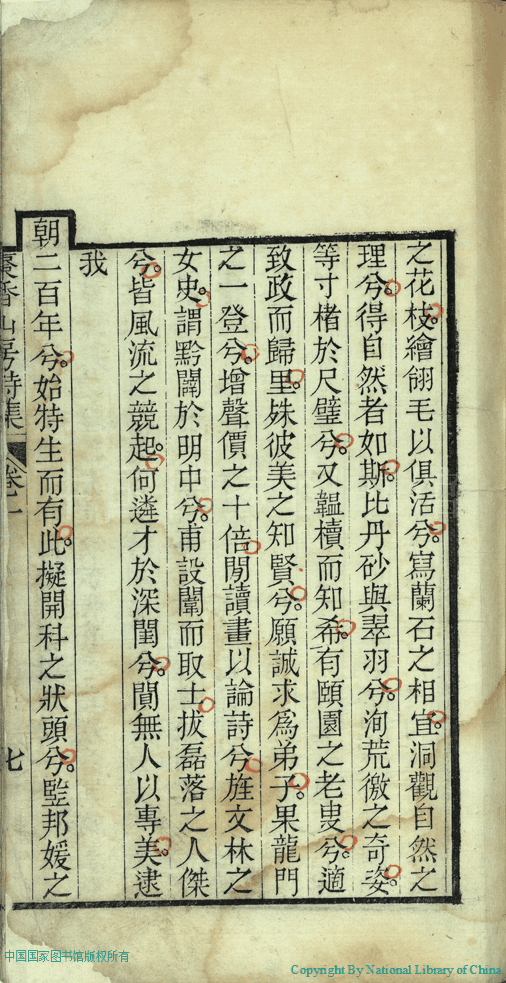 之花枝繪翎毛以俱活兮寫蘭石之相宜洞觀自然之
理兮得自然者如斯比丹砂與翠羽兮洵荒徼之奇姿
等寸楮於尺璧兮又韞櫝而知希有頤園之老叟兮適
致政而歸里姝彼美之知賢兮願誠求為弟子果龍門
之一登兮增聲價之十倍閒讀畫以論詩兮旌文林之
女史謂黔闈於明中兮甫設闈而取士拔磊落之人傑
兮皆風流之競起何遴才於深閨兮闃無人以專美逮
我
朝二百年兮始特生而有此擬開科之狀頭兮監邦媛之
棗香山房詩集
卷一
七
中国国家图书馆版权所有
Copyright By National Library of China